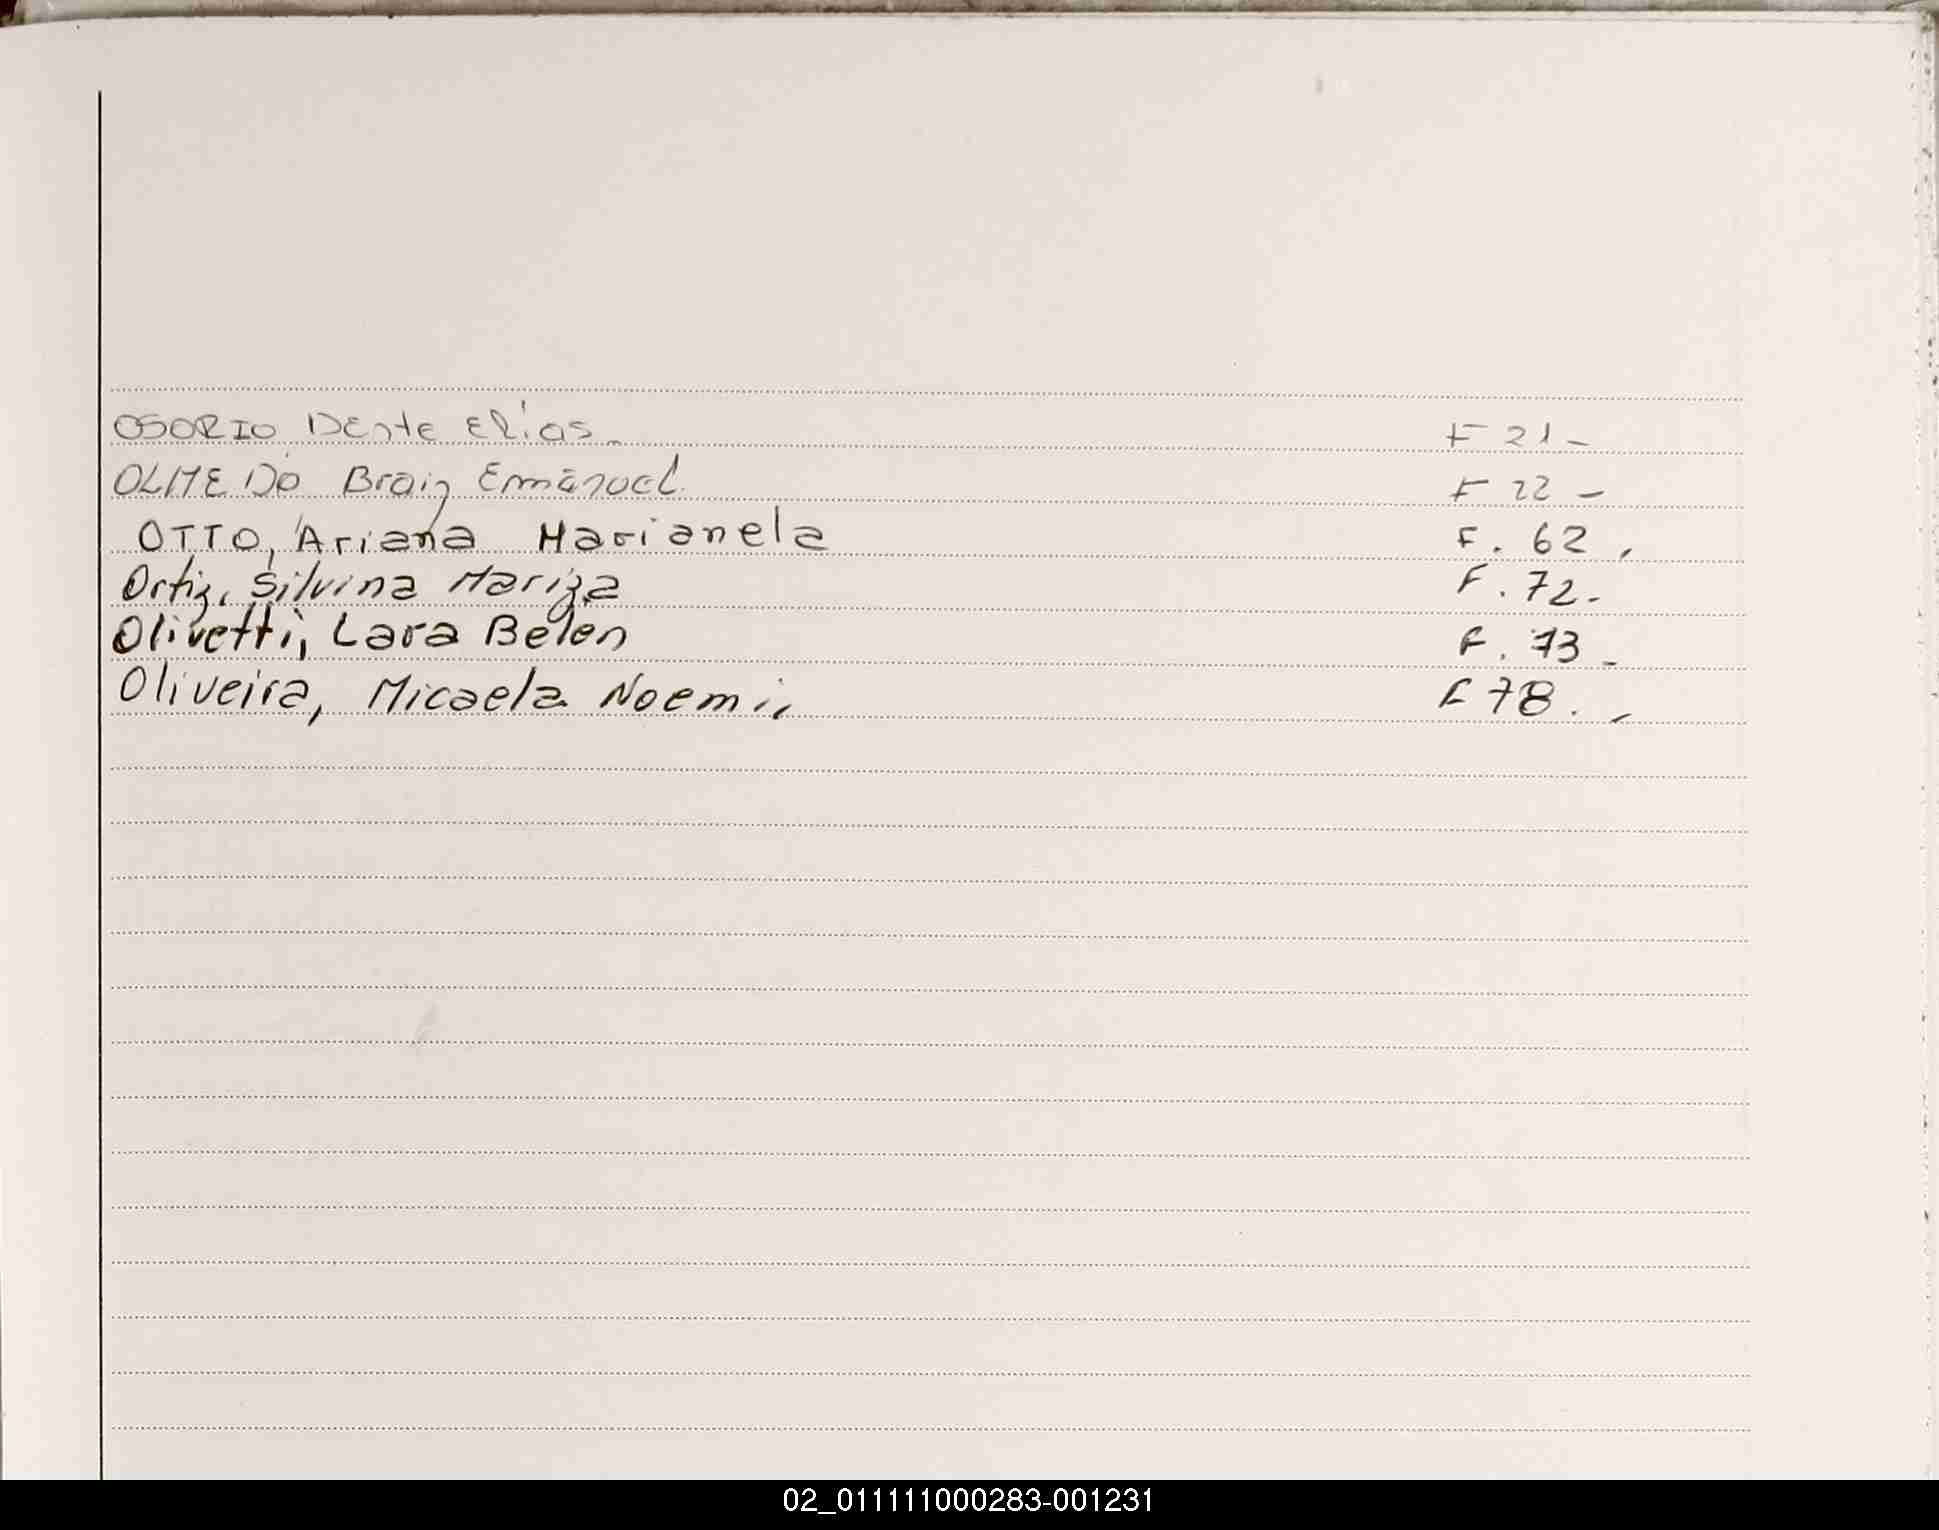 OSORIO Dente Elias. F 21 -
OLMEDO Brain Emanuel. F 22 -
OTTO, Ariana Marianela F. 62.
Ortiz, Silvina Mariza F. 72.-
Olivetti, Lara Belen F. 73 -
Oliveira, Micaela Noemi.. F 78. -
02_011111000283-001231